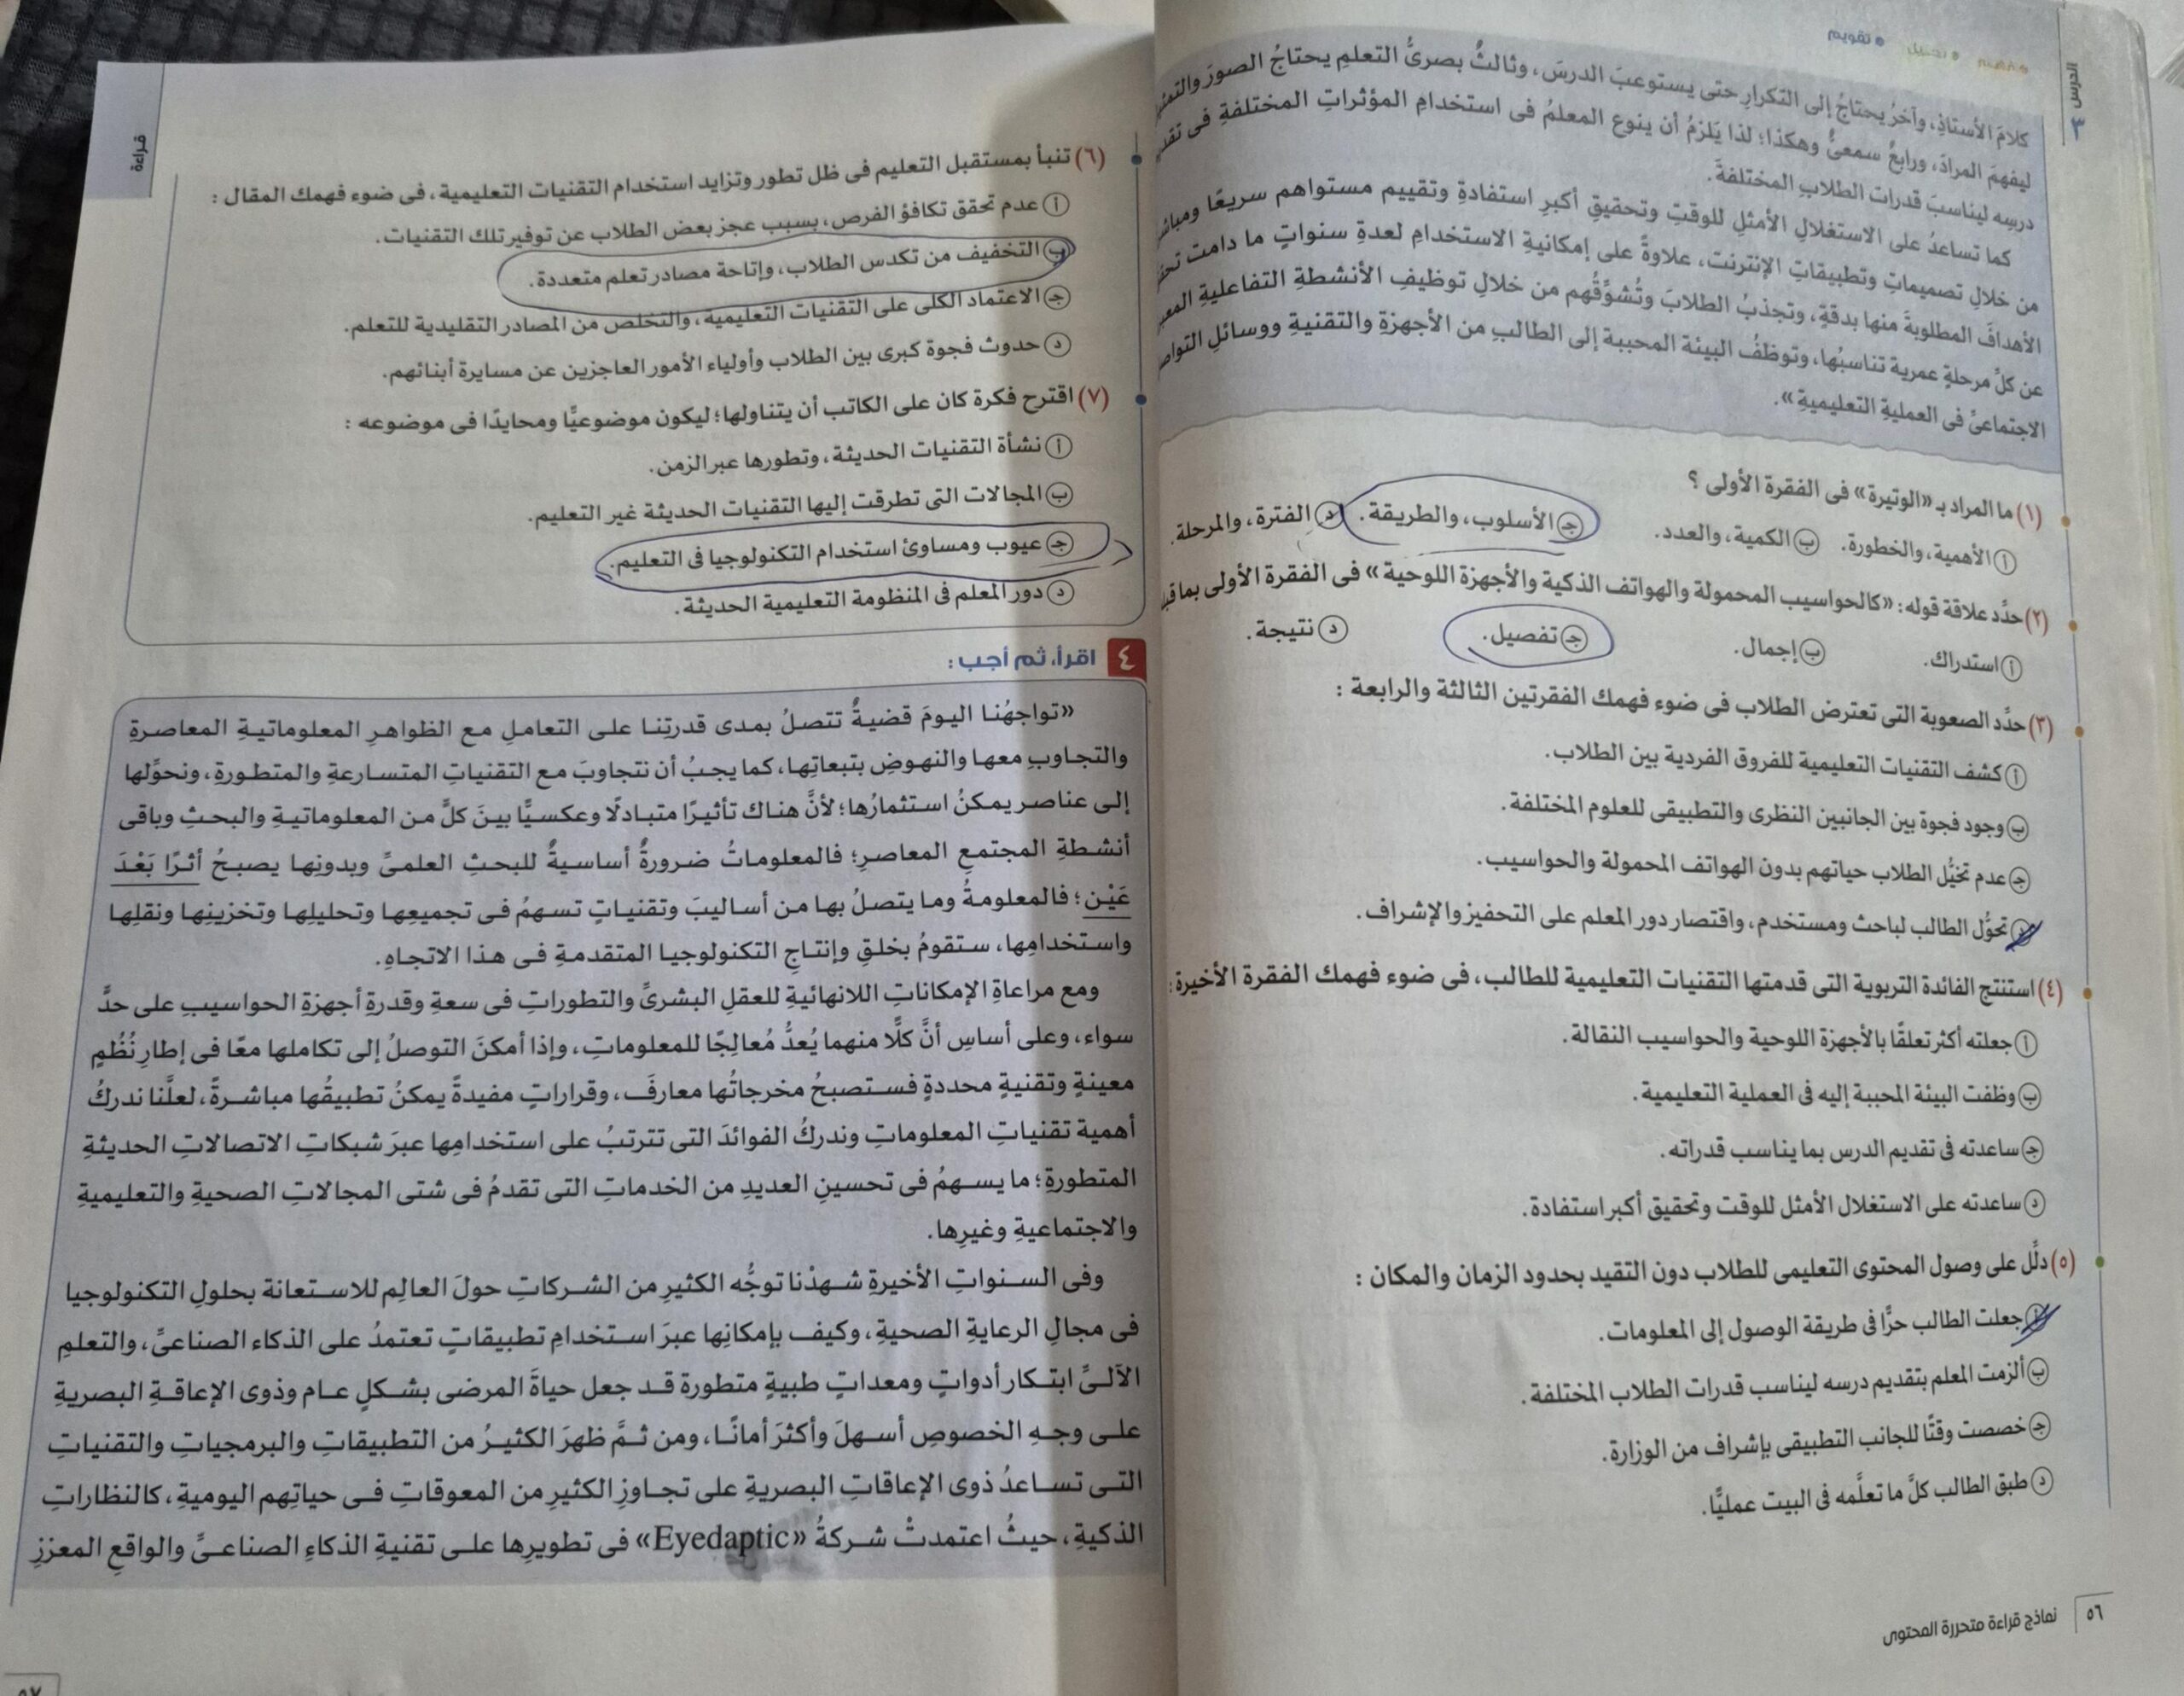 الدرس
٣
• فهم • تحليل • تقويم
كلامَ الأستاذِ، وآخرُ يحتاجُ إلى التكرارِ حتى يستوعبَ الدرسَ، وثالثٌ بصرىُّ التعلمِ يحتاجُ الصورَ
ليفهمَ المرادَ، ورابعٌ سمعىٌّ وهكذا؛ لذا يَلزمُ أن ينوع المعلمُ فى استخدامِ المؤثراتِ المختلفةِ فى
درسِه ليناسبَ قدراتِ الطلابِ المختلفةَ.
كما تساعدُ على الاستغلالِ الأمثلِ للوقتِ وتحقيقِ أكبرِ استفادةٍ وتقييم مستواهم سريعًا
من خلالِ تصميماتِ وتطبيقاتِ الإنترنت، علاوةً على إمكانيةِ الاستخدامِ لعدةِ سنواتٍ ما دامت
الأهدافَ المطلوبةَ منها بدقةٍ، وتجذبُ الطلابَ وتُشوِّقُهم من خلالِ توظيفِ الأنشطةِ التفاعليةِ
عن كلِّ مرحلةٍ عمرية تناسبُها، وتوظفُ البيئة المحببة إلى الطالبِ من الأجهزةِ والتقنيةِ ووسائلِ
الاجتماعىِّ فى العمليةِ التعليميةِ».
(١) ما المراد بـ «الوتيرة» فى الفقرة الأولى ؟
أ الأهمية، والخطورة. ب الكمية، والعدد. ج الأسلوب، والطريقة. د الفترة، والمرحلة.
(٢) حدِّد علاقة قوله: «كالحواسيب المحمولة والهواتف الذكية والأجهزة اللوحية» فى الفقرة الأولى
أ استدراك. ب إجمال. ج تفصيل. د نتيجة.
(٣) حدِّد الصعوبة التى تعترض الطلاب فى ضوء فهمك الفقرتين الثالثة والرابعة :
أ كشف التقنيات التعليمية للفروق الفردية بين الطلاب.
ب وجود فجوة بين الجانبين النظرى والتطبيقى للعلوم المختلفة.
ج عدم تخيُّل الطلاب حياتهم بدون الهواتف المحمولة والحواسيب.
د تحوُّل الطالب لباحث ومستخدم، واقتصار دور المعلم على التحفيز والإشراف.
(٤) استنتج الفائدة التربوية التى قدمتها التقنيات التعليمية للطالب، فى ضوء فهمك الفقرة الأخيرة :
أ جعلته أكثر تعلقًا بالأجهزة اللوحية والحواسيب النقالة.
ب وظفت البيئة المحببة إليه فى العملية التعليمية.
ج ساعدته فى تقديم الدرس بما يناسب قدراته.
د ساعدته على الاستغلال الأمثل للوقت وتحقيق أكبر استفادة.
(٥) دلِّل على وصول المحتوى التعليمى للطلاب دون التقيد بحدود الزمان والمكان :
أ جعلت الطالب حرًّا فى طريقة الوصول إلى المعلومات.
ب ألزمت المعلم بتقديم درسه ليناسب قدرات الطلاب المختلفة.
ج خصصت وقتًا للجانب التطبيقى بإشراف من الوزارة.
د طبق الطالب كلَّ ما تعلَّمه فى البيت عمليًّا.
٥٦ نماذج قراءة متحررة المحتوى
قراءة
(٦) تنبأ بمستقبل التعليم فى ظل تطور وتزايد استخدام التقنيات التعليمية، فى ضوء فهمك المقال :
أ عدم تحقق تكافؤ الفرص، بسبب عجز بعض الطلاب عن توفير تلك التقنيات.
ب التخفيف من تكدس الطلاب، وإتاحة مصادر تعلم متعددة.
ج الاعتماد الكلى على التقنيات التعليمية، والتخلص من المصادر التقليدية للتعلم.
د حدوث فجوة كبرى بين الطلاب وأولياء الأمور العاجزين عن مسايرة أبنائهم.
(٧) اقترح فكرة كان على الكاتب أن يتناولها؛ ليكون موضوعيًّا ومحايدًا فى موضوعه :
أ نشأة التقنيات الحديثة، وتطورها عبر الزمن.
ب المجالات التى تطرقت إليها التقنيات الحديثة غير التعليم.
ج عيوب ومساوئ استخدام التكنولوجيا فى التعليم.
د دور المعلم فى المنظومة التعليمية الحديثة.
٤ اقرأ، ثم أجب :
«تواجهُنا اليومَ قضيةٌ تتصلُ بمدى قدرتِنا على التعاملِ مع الظواهرِ المعلوماتيةِ المعاصرةِ
والتجاوبِ معها والنهوضِ بتبعاتِها، كما يجبُ أن نتجاوبَ مع التقنياتِ المتسارعةِ والمتطورةِ، ونحوِّلها
إلى عناصر يمكنُ استثمارُها؛ لأنَّ هناك تأثيرًا متبادلًا وعكسيًّا بينَ كلٍّ من المعلوماتيةِ والبحثِ وباقى
أنشطةِ المجتمعِ المعاصرِ؛ فالمعلوماتُ ضرورةٌ أساسيةٌ للبحثِ العلمىِّ وبدونِها يصبحُ أثرًا بَعْدَ
عَيْنٍ؛ فالمعلومةُ وما يتصلُ بها من أساليبَ وتقنياتٍ تسهمُ فى تجميعِها وتحليلِها وتخزينِها ونقلِها
واستخدامِها، ستقومُ بخلقِ وإنتاجِ التكنولوجيا المتقدمةِ فى هذا الاتجاهِ.
ومع مراعاةِ الإمكاناتِ اللانهائيةِ للعقلِ البشرىِّ والتطوراتِ فى سعةِ وقدرةِ أجهزةِ الحواسيبِ على حدٍّ
سواء، وعلى أساسِ أنَّ كلًّا منهما يُعدُّ مُعالِجًا للمعلوماتِ، وإذا أمكنَ التوصلُ إلى تكاملها معًا فى إطارِ نُظُمٍ
معينةٍ وتقنيةٍ محددةٍ فستصبحُ مخرجاتُها معارفَ، وقراراتٍ مفيدةً يمكنُ تطبيقُها مباشرةً، لعلَّنا ندركُ
أهمية تقنياتِ المعلوماتِ وندركُ الفوائدَ التى تترتبُ على استخدامِها عبرَ شبكاتِ الاتصالاتِ الحديثةِ
المتطورةِ؛ ما يسهمُ فى تحسينِ العديدِ من الخدماتِ التى تقدمُ فى شتى المجالاتِ الصحيةِ والتعليميةِ
والاجتماعيةِ وغيرِها.
وفى السنواتِ الأخيرةِ شهدْنا توجُّه الكثيرِ من الشركاتِ حولَ العالمِ للاستعانة بحلولِ التكنولوجيا
فى مجالِ الرعايةِ الصحيةِ، وكيف بإمكانِها عبرَ استخدامِ تطبيقاتٍ تعتمدُ على الذكاء الصناعىِّ، والتعلمِ
الآلىِّ ابتكار أدواتٍ ومعداتٍ طبيةٍ متطورة قد جعل حياةَ المرضى بشكلٍ عام وذوى الإعاقةِ البصريةِ
على وجهِ الخصوصِ أسهلَ وأكثرَ أمانًا، ومن ثمَّ ظهرَ الكثيرُ من التطبيقاتِ والبرمجياتِ والتقنياتِ
التى تساعدُ ذوى الإعاقاتِ البصريةِ على تجاوزِ الكثيرِ من المعوقاتِ فى حياتِهم اليوميةِ، كالنظاراتِ
الذكيةِ، حيثُ اعتمدتْ شركةُ «Eyedaptic» فى تطويرِها على تقنيةِ الذكاءِ الصناعىِّ والواقعِ المعززِ